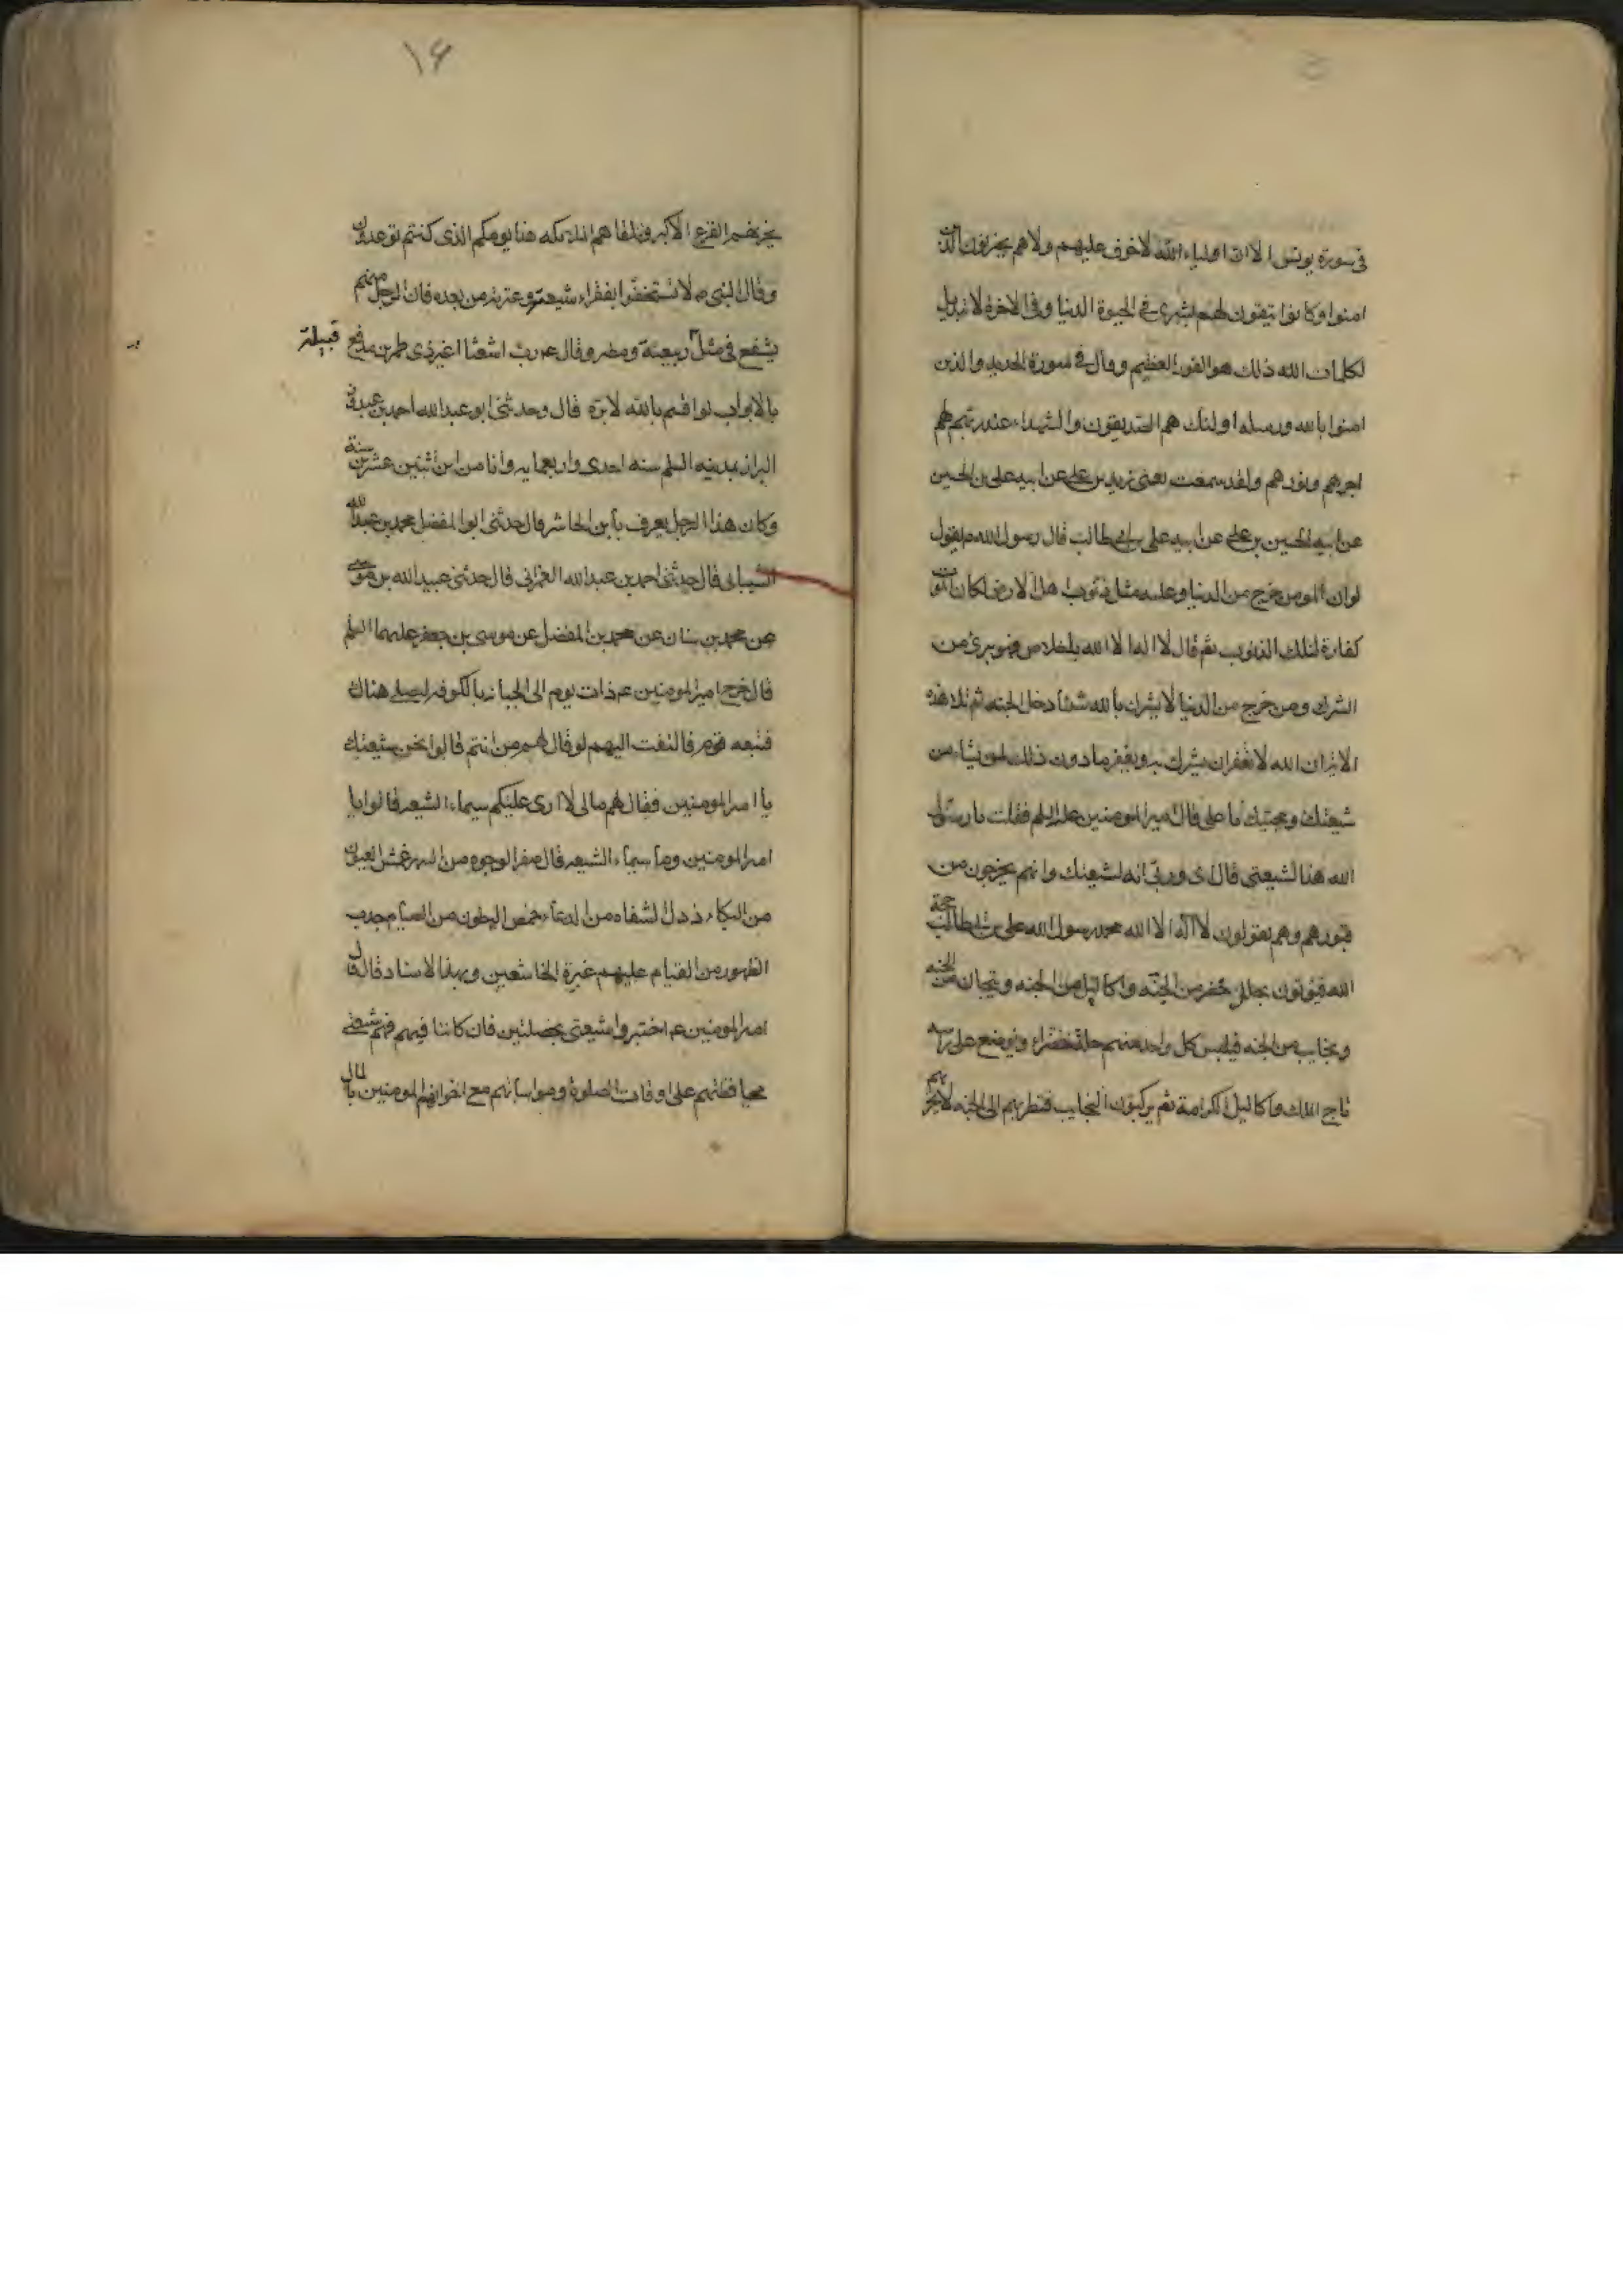 في سورة يونس الا ان اولياء الله لا خوف عليهم ولا هم يحزنون الذين
امنوا وكانوا يتقون لهم البشرى في الحيوة الدنيا وفي الاخرة لا تبديل
لكلمات الله ذلك هو الفوز العظيم وقال في سورة الحديد والذين
امنوا بالله ورسله اولئك هم الصديقون والشهداء عند ربهم لهم
اجرهم ونورهم ولقد سمعت يعني زيد بن علي عن ابيه علي بن الحسين
عن ابيه الحسين بن علي عن ابيه علي بن ابي طالب قال رسول الله ص يقول
لو ان المومن خرج من الدنيا وعليه مثل ذنوب اهل الارض لكان الموت
كفارة لتلك الذنوب ثم قال لا اله الا الله باخلاص فهو برئ من
الشرك ومن خرج من الدنيا لا يشرك بالله شيئا دخل الجنه ثم تلا هذه
الاية ان الله لا يغفر ان يشرك به ويغفر ما دون ذلك لمن يشاء من
شيعتك ومحبيك يا علي قال امير المومنين عليه السلم فقلت يا رسول
الله هذا لشيعتي قال اي وربي انه لشيعتك وانهم يخرجون من
قبورهم وهم يقولون لا اله الا الله محمد رسول الله علي بن ابيطالب حجة
الله فيؤتون بحلل خضر من الجنه واكاليل من الجنه وتيجان من الجنه
ونجايب من الجنه فيلبس كل واحد منهم حلة خضراء ويوضع على راسه
تاج الملك واكاليل الكرامة ثم يركبون النجايب فتطير بهم الى الجنه لا
۱۶
يحزنهم الفزع الاكبر وتتلقاهم الملائكه هذا يومكم الذي كنتم توعدون
وقال النبي ص لا تستخفوا بفقراء شيعة وعترته من بعده فان الرجل منهم
يشفع في مثل ربيعة ومضر وقال ع رب اشعث اغبر ذي طمرين مدفع قبيلة
بالابواب لو اقسم بالله لابره قال وحدثني ابو عبد الله احمد بن عبدون
البزاز بمدينه السلم سنه احدى واربعمايه وانا من ابن اثنين عشرين سنة
وكان هذا الرجل يعرف بابن الحاشر قال حدثني ابو المفضل محمد بن عبد الله
الشيباني قال حدثني احمد بن عبد الله قال حدثني عبيد الله بن موسى
عن محمد بن سنان عن محمد بن المفضل عن موسى بن جعفر عليهما السلم
قال خرج امير المومنين ع ذات يوم الى الجبانه بالكوفه ليصلي هناك
فتبعه قوم فالتفت اليهم وقال لهم من انتم قالوا نحن شيعتك
يا امير المومنين فقال لهم مالي لا ارى عليكم سيماء الشيعه قالوا يا
امير المومنين وما سيماء الشيعه قال صفر الوجوه من السهر عمش العيون
من البكاء ذبل الشفاه من الدعاء خمص البطون من الصيام حدب
الظهور من القيام عليهم غبرة الخاشعين وبهذا الاسناد قال قال
امير المومنين ع اختبروا شيعتي بخصلتين فان كانتا فيهم فهم شيعتي
محافظتهم على اوقات الصلوة ومواساتهم مع اخوانهم المومنين بالمال